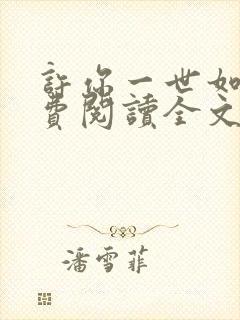 許你一世如
費閱讀全文
潘雪菲